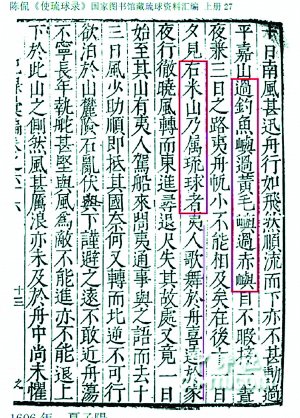 陈侃《使琉球录》国家图书馆藏琉球资料汇编 上册 27
十日南風甚迅舟行如飛然順流而下亦不甚動過
平嘉山過釣魚嶼過黃毛嶼過赤嶼目不暇接一晝
夜兼三日之路夷舟帆小不能相及矣在後十一日
夕見古米山乃屬琉球者夷人歌舞於舟喜達於家
夜行徹曉風轉而東進尋退尺失其故處又竟一日
始至其山有夷人駕船來問夷通事與之語而去十
三日風少助順即抵其國奈何又轉而北逆不可行
欲泊於山麓險石亂伏與下謹避之遠不敢近舟蕩
不寧長年執舵甚堅與風為敵不能進亦不能退上
下於此山之側然風甚厲浪亦未及於舟中尚未懼
十三